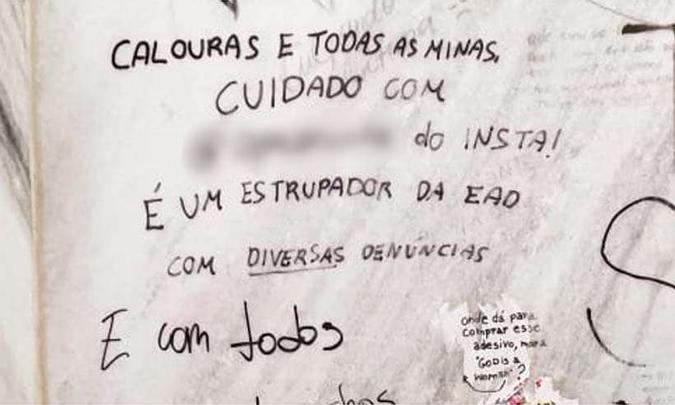 CALOURAS E TODAS AS MINAS,
CUIDADO COM
do INSTA!
É UM ESTRUPADOR DA EAD
COM DIVERSAS DENÚNCIAS
E com todos
onde dá para
comprar esse
adesivo, mana
"GOD IS A
WOMAN"?